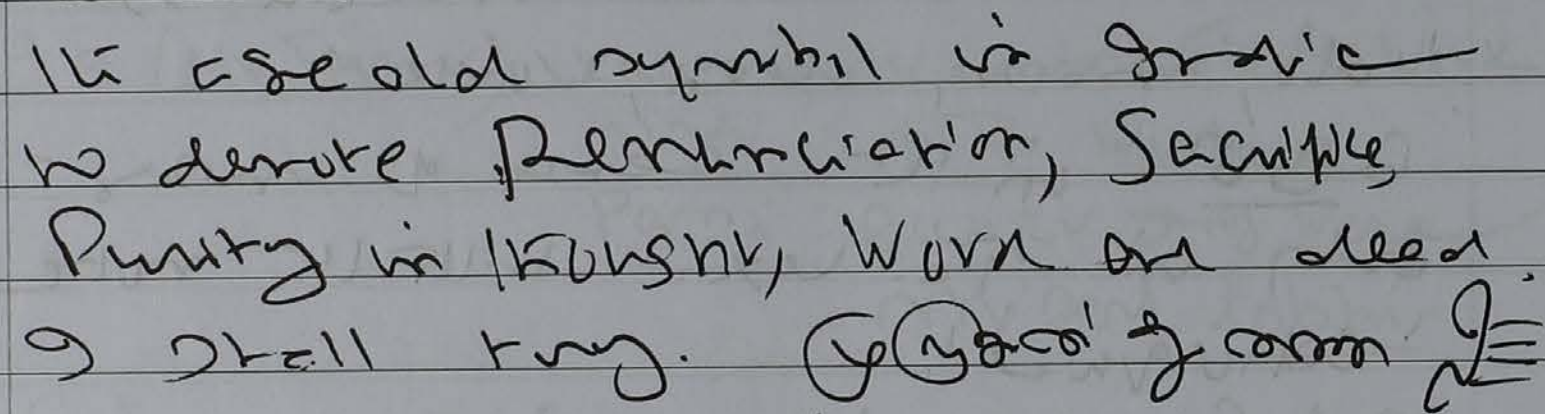 the age old symbol in India
to denote Renunciation, Sacrifice,
Purity in thought, Word and deed
I shall try.